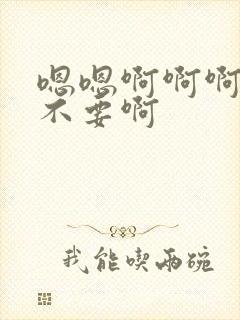 嗯嗯啊啊啊
不要啊
我能喫兩碗